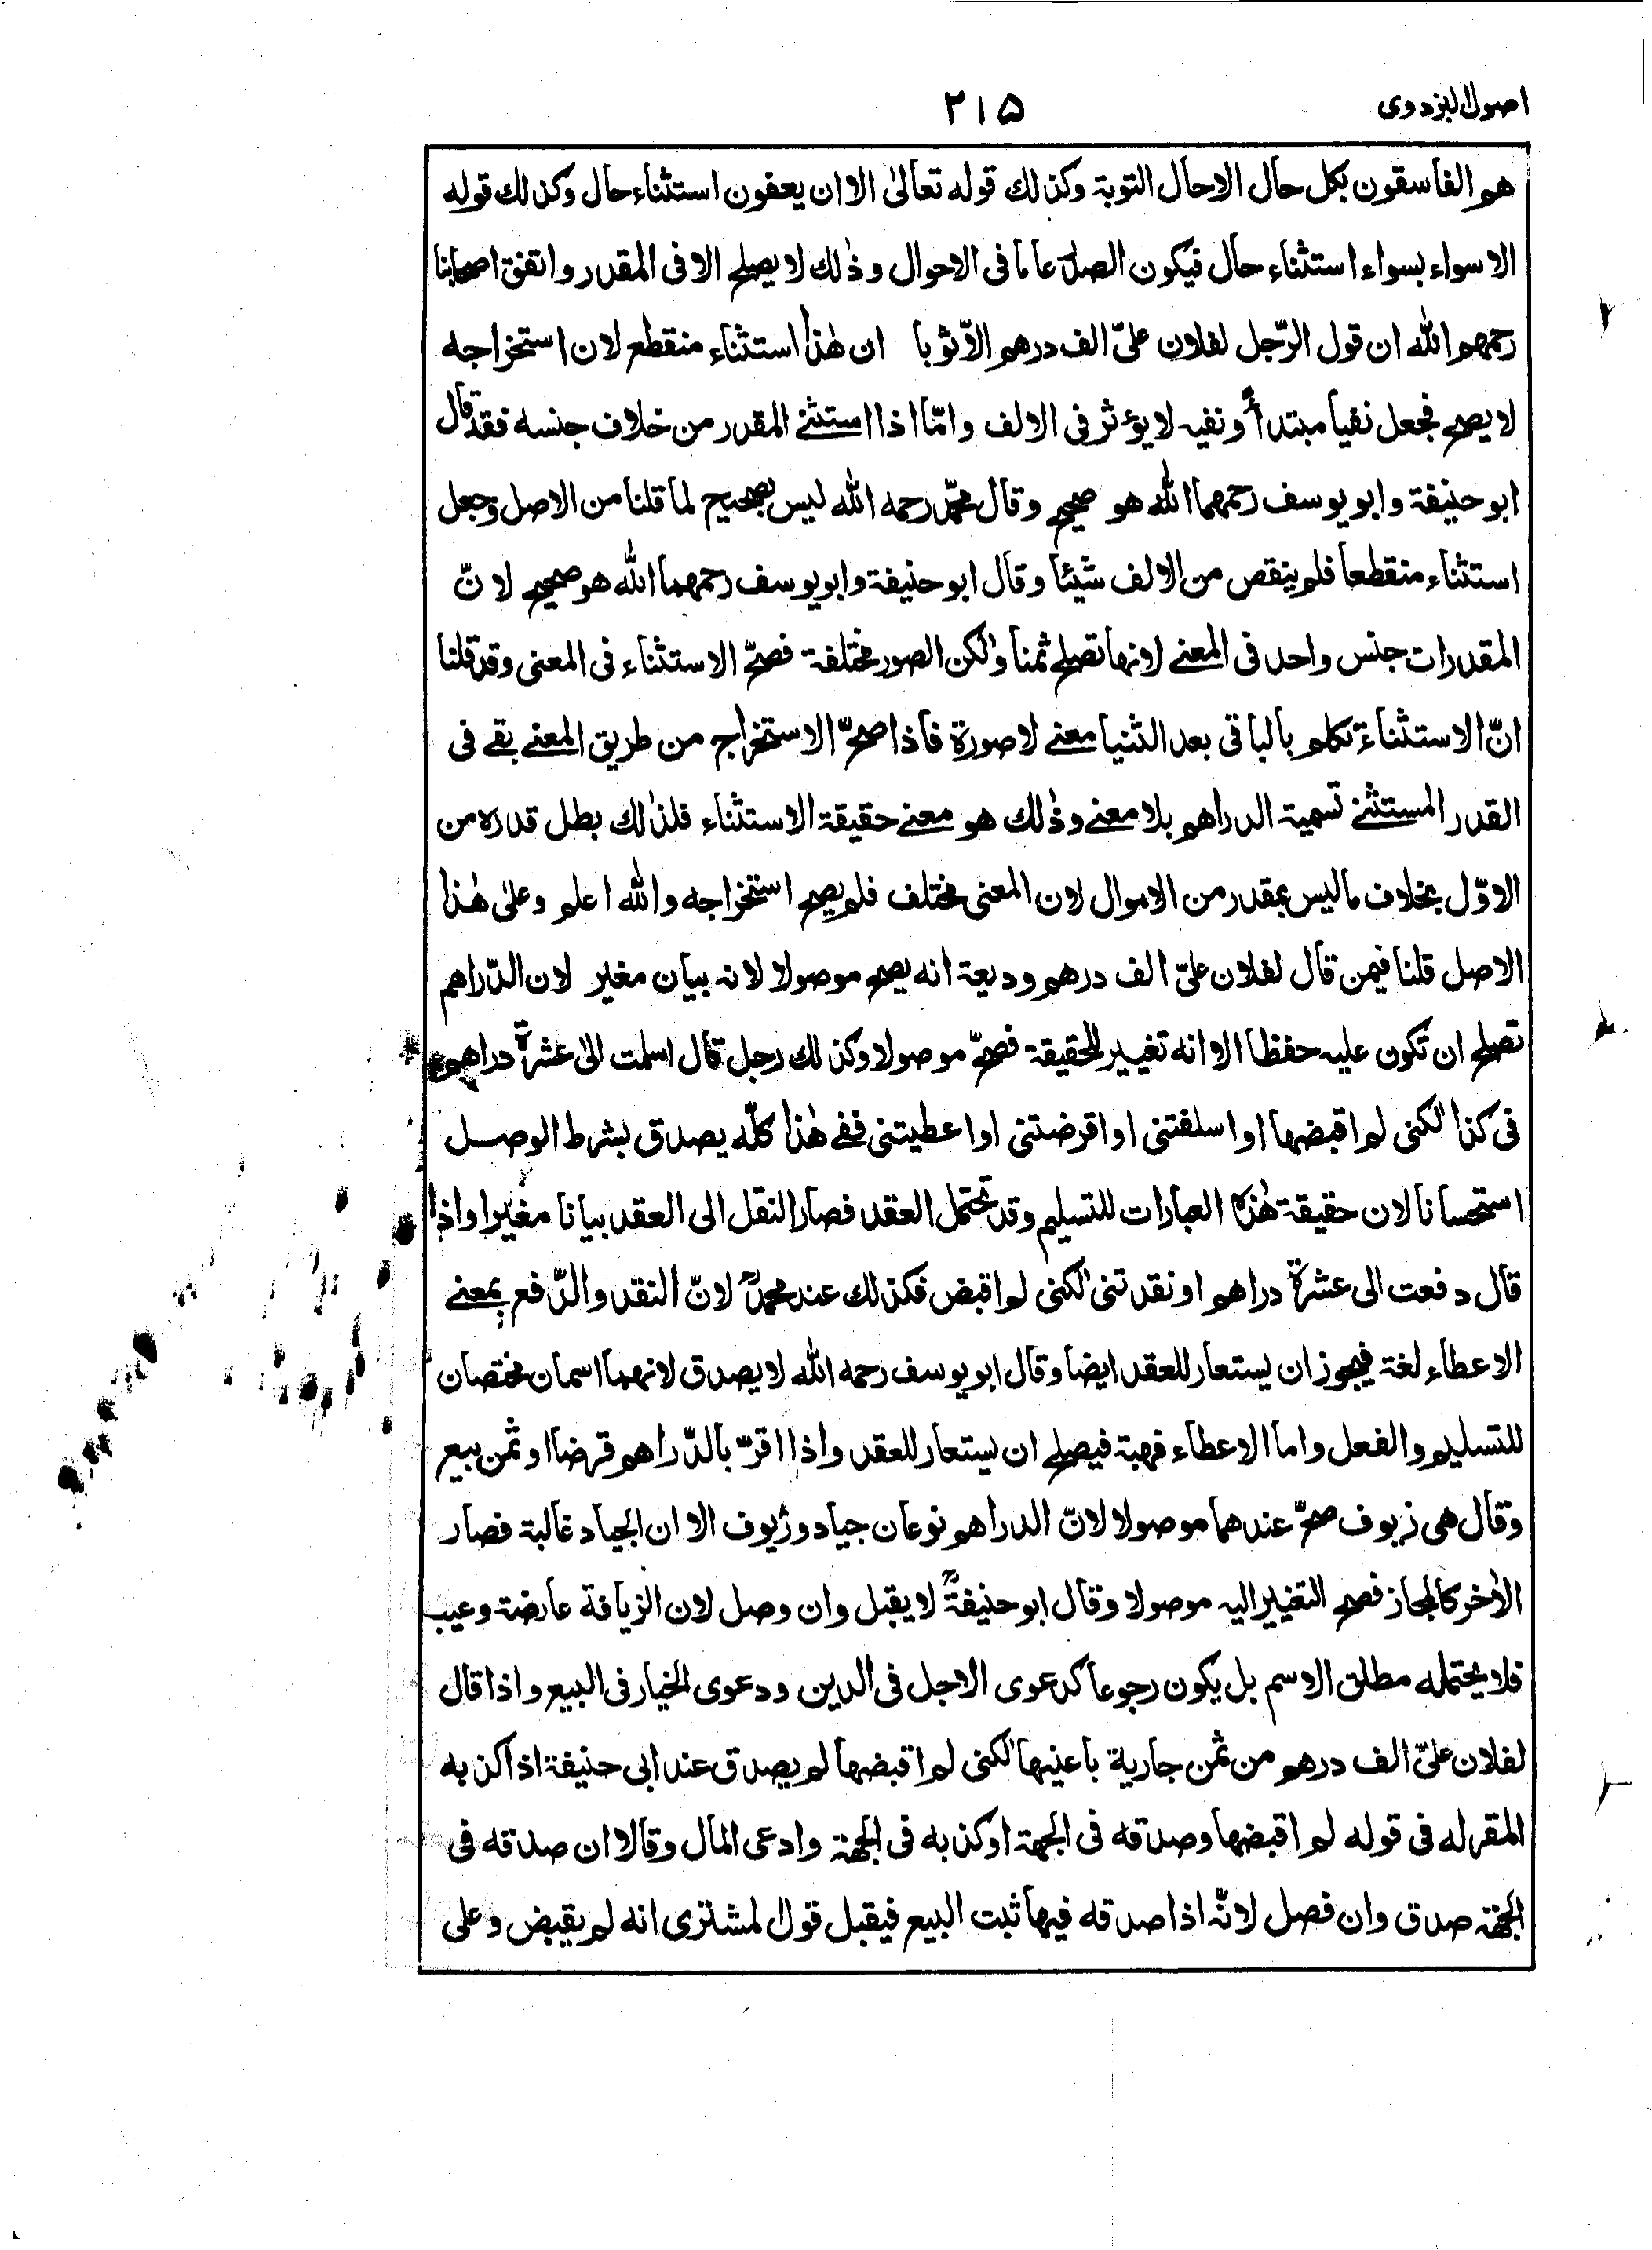 اصول البزدوی
٢١٥
هم الفاسقون بكل حال الا حال التوبة وكذلك قوله تعالىٰ الا ان يعفون استثناء حال وكذلك قوله
الا سواء بسواء استثناء حال فيكون الصدر عاما فى الاحوال وذٰلك لا يصلح الا فى المقدر واتفق اصحابنا
رحمهم الله ان قول الرّجل لفلان علىّ الف درهم الاّ ثوبا ان هٰذا استثناء منقطع لان استخراجه
لا يصح فجعل نفيا مبتدأً ونفيه لا يؤثر فى الالف وامّا اذا استثنے المقدر من خلاف جنسه فقد قال
ابو حنيفة وابو يوسف رحمهما الله هو صحيح وقال محمّد رحمه الله ليس بصحيح لما قلنا من الاصل وجعل
استثناء منقطعا فلم ينقص من الالف شيئا وقال ابو حنيفة وابو يوسف رحمهما الله هو صحيح لانّ
المقدرات جنس واحد فى المعنے لانها تصلح ثمنا ولٰكن الصور مختلفة فصحّ الاستثناء فى المعنى وقد قلنا
انّ الاستثناء تكلم بالباقى بعد الثنيا معنے لا صورة فاذا صحّ الاستخراج من طريق المعنے بقے فى
القدر المستثنے تسمية الدراهم بلا معنے وذٰلك هو معنے حقيقة الاستثناء فلذٰلك بطل قدره من
الاوّل بخلاف ما ليس بمقدر من الاموال لان المعنى مختلف فلم يصح استخراجه والله اعلم وعلىٰ هٰذا
الاصل قلنا فيمن قال لفلان علىّ الف درهم وديعة انه يصح موصولا لانه بيان مغير لان الدّراهم
تصلح ان تكون عليه حفظا الا انه تغيير للحقيقة فصحّ موصولا وكذلك رجل قال اسلمت الىٰ عشرة دراهم
فى كذا لٰكنى لم اقبضها او اسلفتنى او اقرضتنى او اعطيتنى ففے هٰذا كلّه يصدق بشرط الوصل
استحسانا لان حقيقة هٰذه العبارات للتسليم وقد تحتمل العقد فصار النقل الى العقد بيانا مغيرا واذا
قال دفعت الى عشرة دراهم او نقدتنى لٰكنى لم اقبض فكذلك عند محمدؒ لانّ النقد والدّفع بمعنے
الاعطاء لغة فيجوز ان يستعار للعقد ايضا وقال ابو يوسف رحمه الله لا يصدق لانهما اسمان مختصان
للتسليم والفعل واما الاعطاء فهبة فيصلح ان يستعار للعقد واذا اقرّ بالدّراهم قرضا او ثمن بيع
وقال هى زيوف صحّ عندهما موصولا لانّ الدراهم نوعان جياد وزيوف الا ان الجياد غالبة فصار
الاٰخر كالمجاز فصح التغيير اليه موصولا وقال ابو حنيفةؒ لا يقبل وان وصل لان الزيافة عارضة وعيب
فلا يحتمله مطلق الاسم بل يكون رجوعا كدعوى الاجل فى الدين ودعوى الخيار فى البيع واذا قال
لفلان علىّ الف درهم من ثمن جارية باعنيها لٰكنى لم اقبضها لم يصدق عند ابى حنيفة اذا كذبه
المقر له فى قوله لم اقبضها وصدقه فى الجهة او كذبه فى الجهة وادعى المال وقالا ان صدقه فى
الجهة صدق وان فصل لانّه اذا صدقه فيها ثبت البيع فيقبل قول لمشترى انه لم يقبض وعلى